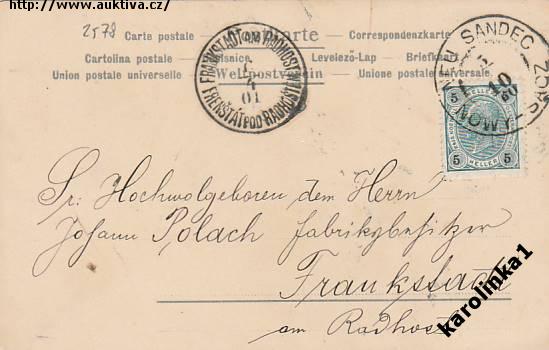 http://www.auktiva.cz/
2578
Carte postale Correspondenzkarte
Cartolina postale Levelező-Lap
Union postale universelle Weltpostverein Unione postale universale
FRANKSTADT AM RADHOSTEM
4
01
FRENŠTÁT POD RADHOŠTĚM
SANDEC
NOWY
5 5
HELLER
5 5
Sr. Hochwolgeboren dem Herrn
Johann Polach fabriksbesitzer
Frankstadt
am Radhost
karolinka1